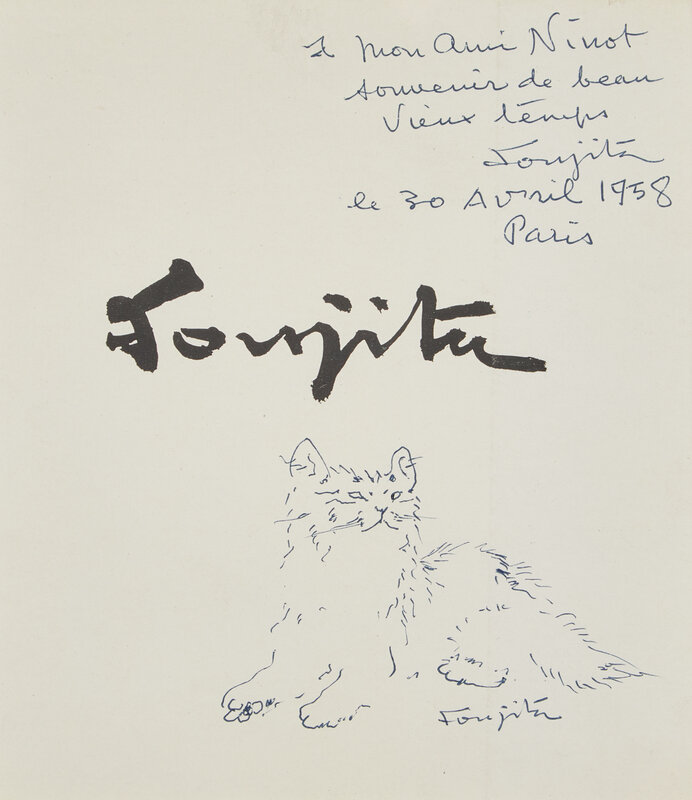 à mon Ami Ninot
souvenir de beau
Vieux temps
Foujita
le 30 Avril 1958
Paris
Foujita
Foujita